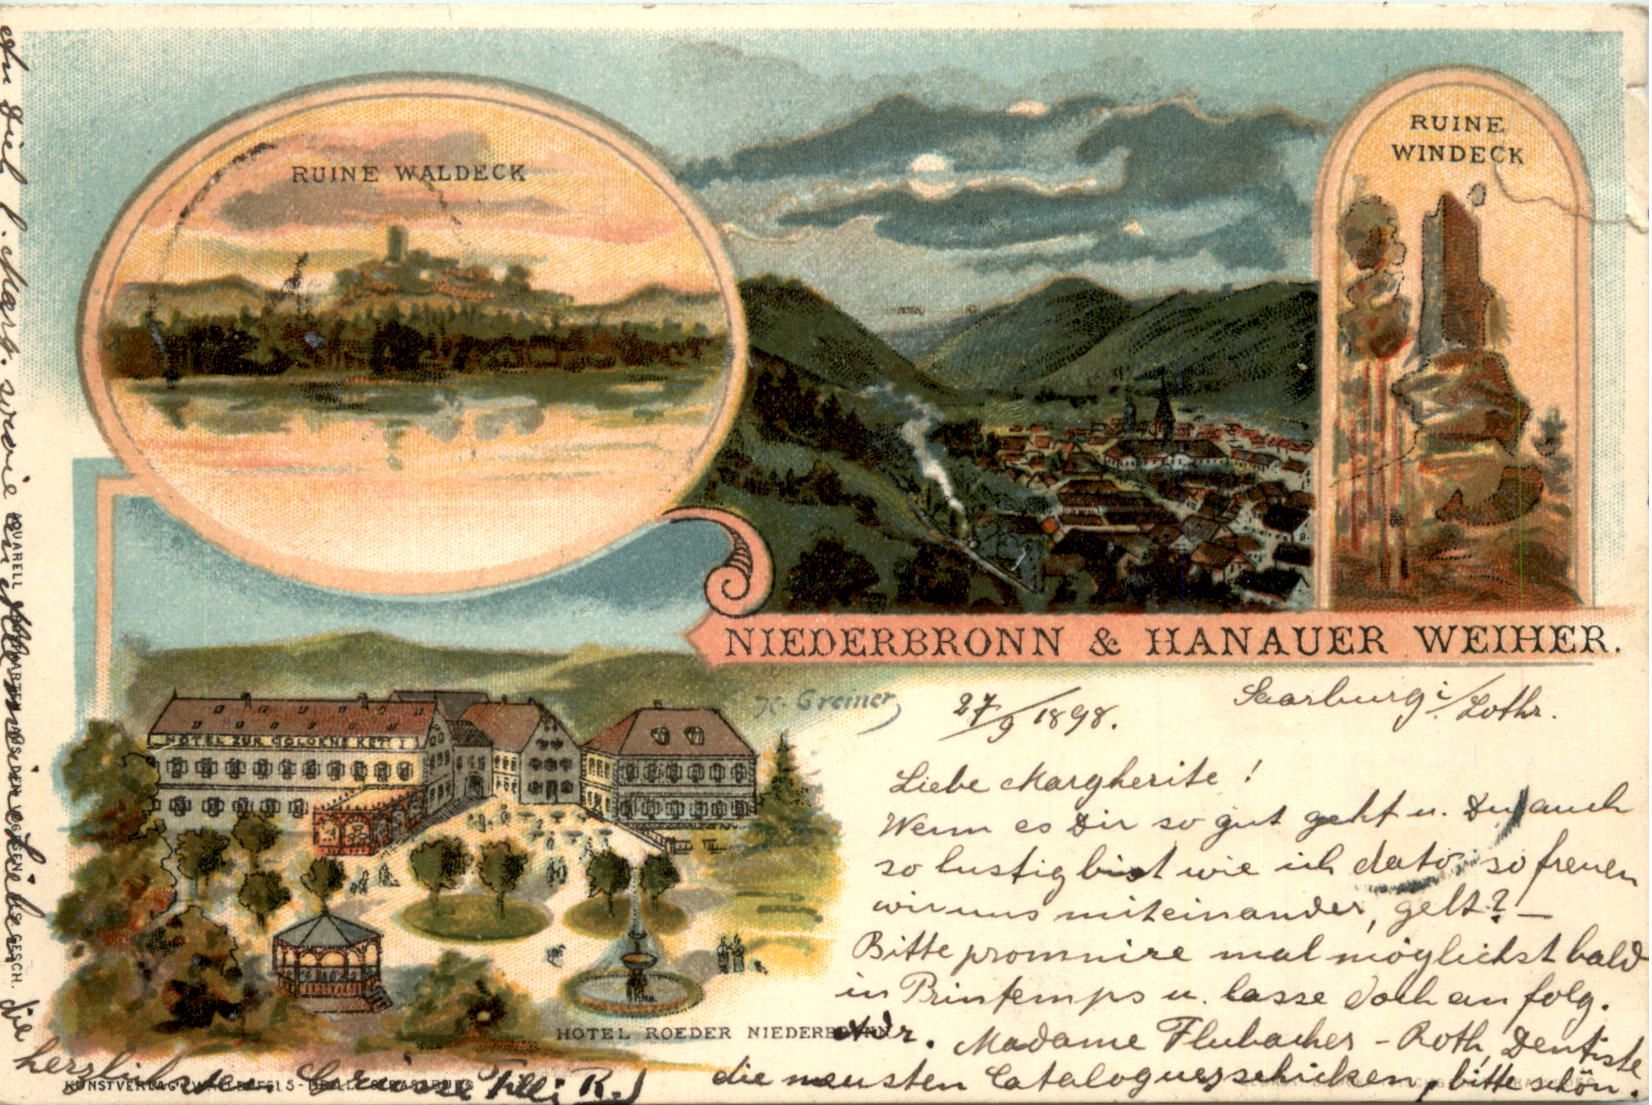 RUINE WALDECK
RUINE
WINDECK
NIEDERBRONN & HANAUER WEIHER.
K. Greiner
HOTEL ZUR GOLDENE KETTE
HOTEL ROEDER NIEDERBRONN
27/9 1898. Saarburg i/Lothr.
Liebe Margherite!
Wenn es Dir so gut geht u. Du auch
so lustig bist wie ich dato, so freuen
wir uns miteinander, gelt? —
Bitte promnire mal möglichst bald
in Printemps u. lasse doch an folg.
Adr. Madame Flubacher-Roth, Dentiste
die neusten Cataloque schicken, bitte schön.
An Dich l. Marg. sowie an
Lieben die
herzlichsten Grüsse Tilli R.
KUNSTVERLAG STRASSBURG
GES. GESCH.